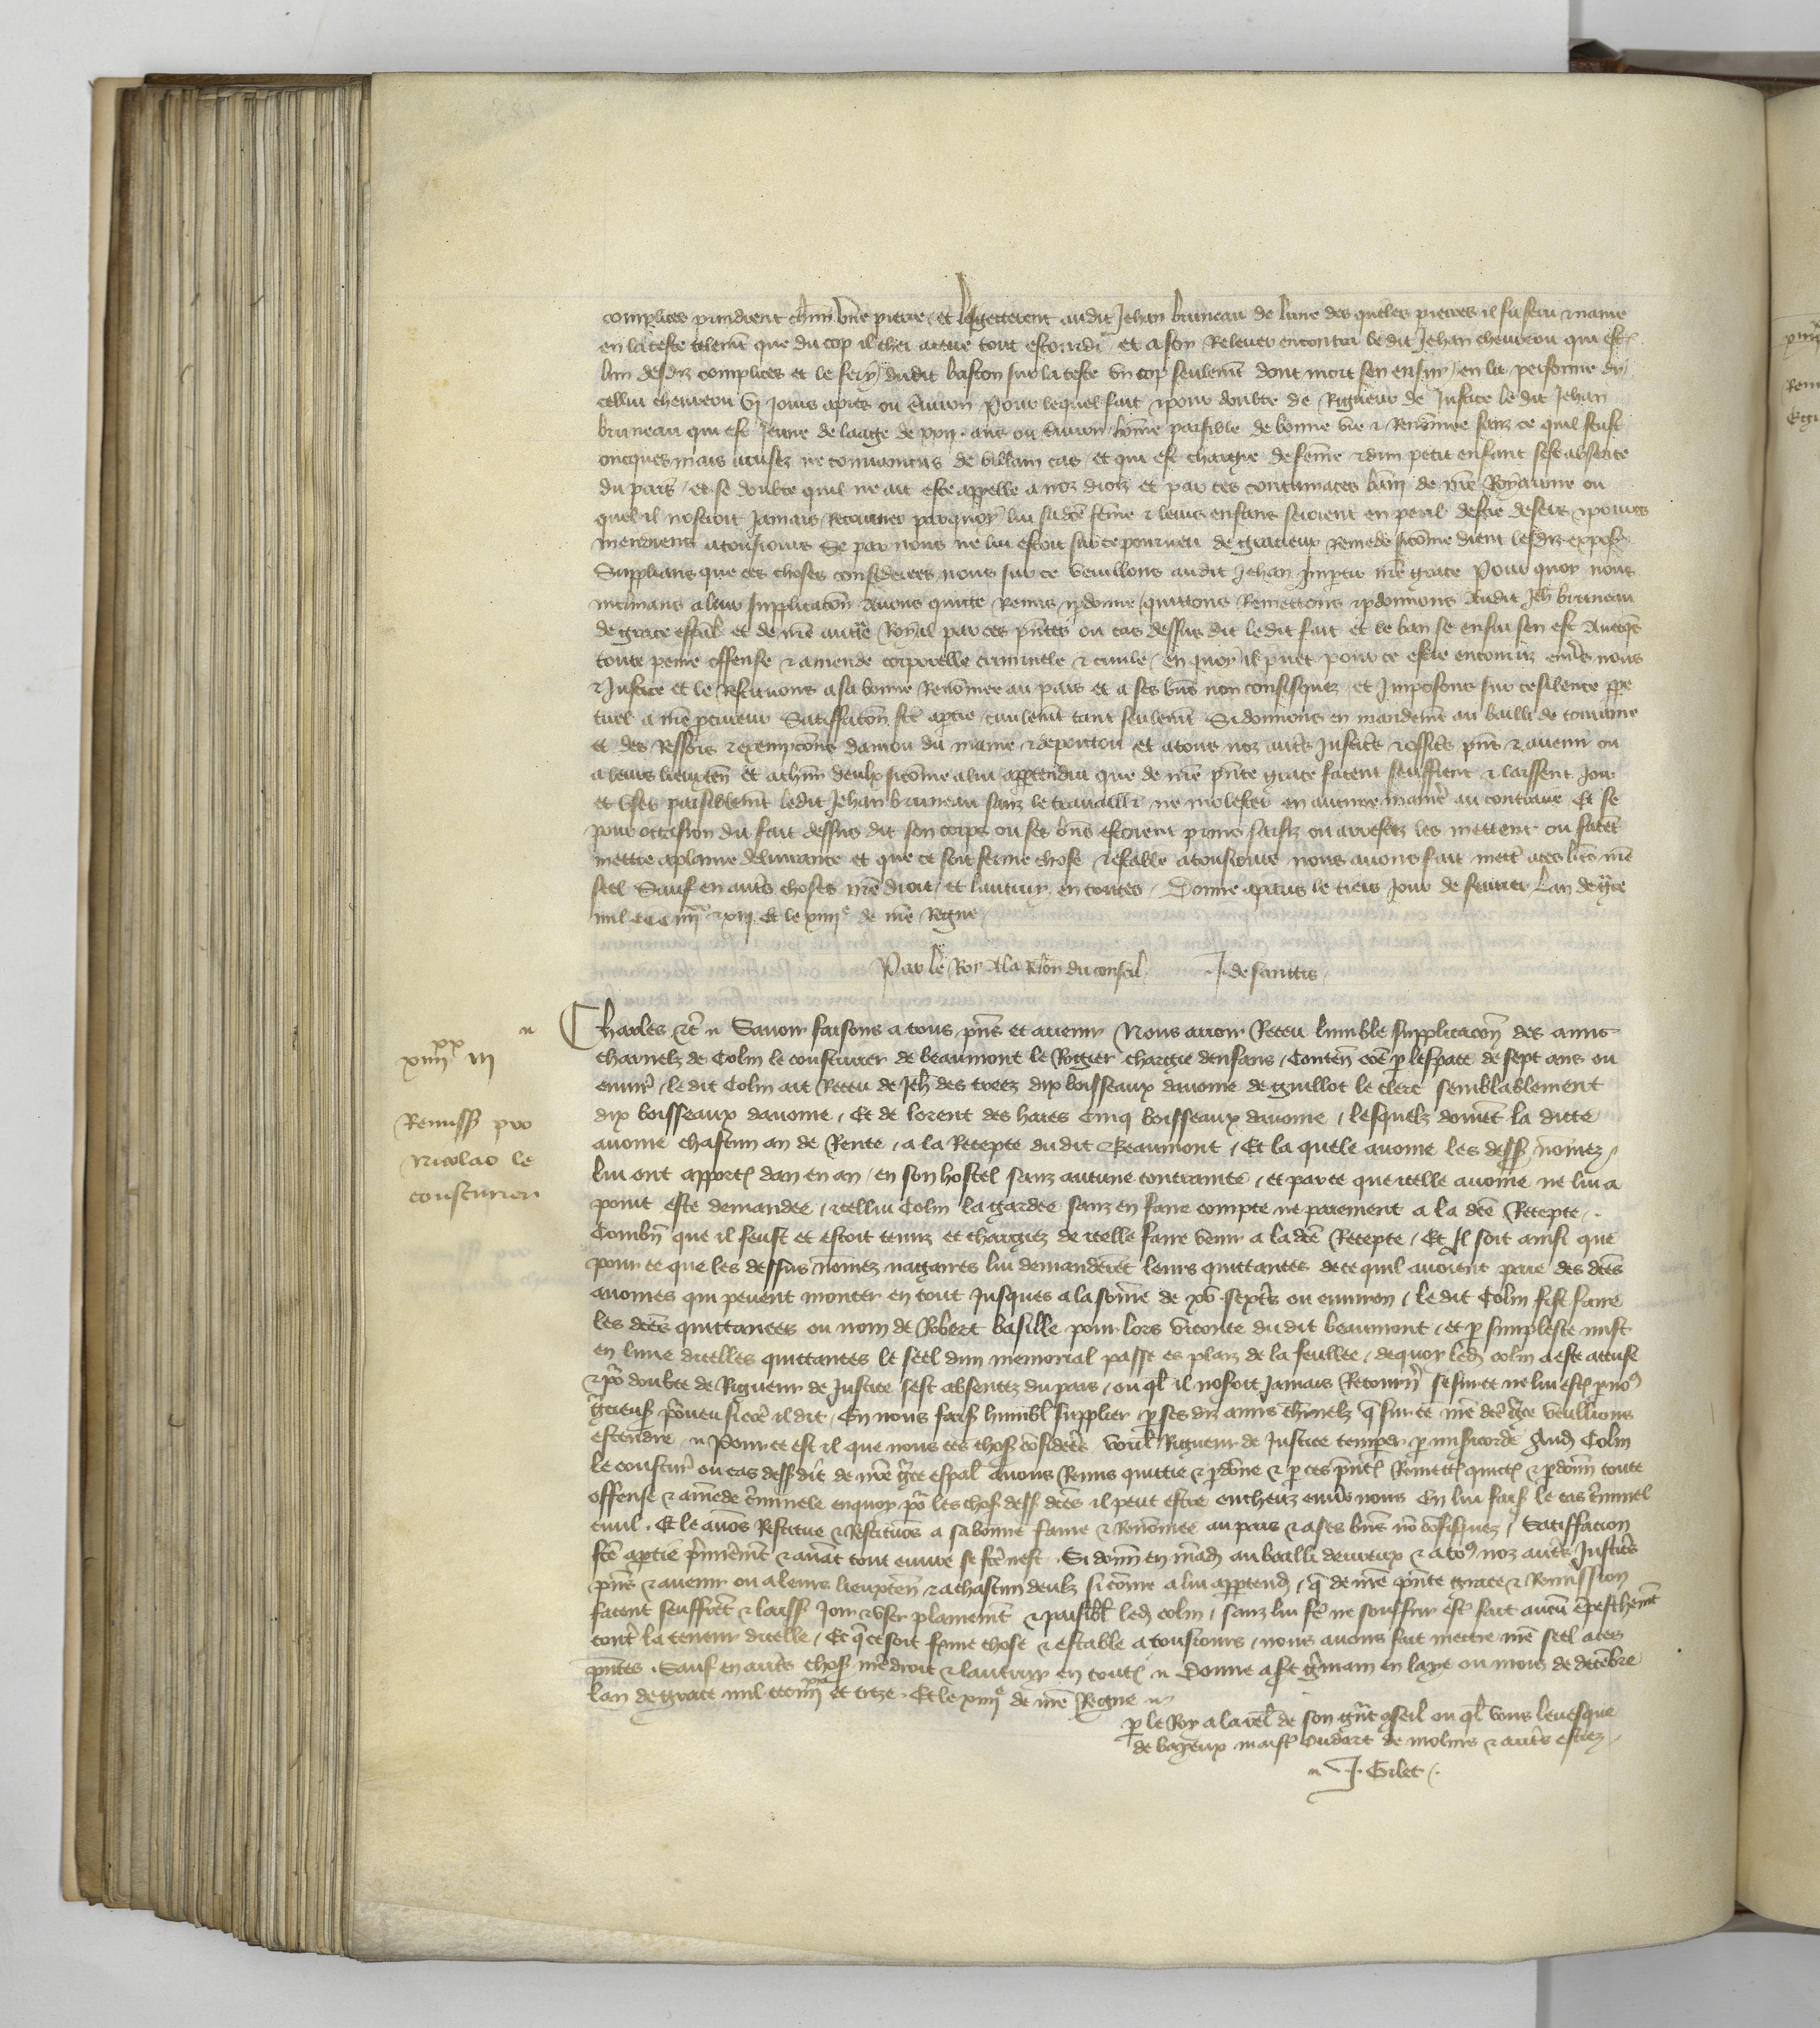 complices prindrent chũn une pierre / et les getterent audit Jehan bruneau de lune des queles pierres il fu feru
en la teste telemt que du cop il chei a terre tout estourdi et a son Relever encontra ledit Jehan chevreau qui est
lun desdiz complices et le feri dudit baston sur la teste un cop seulemt dont mort sen ensui / en la personne di
cellui chevreau vj jours apres ou environ Pour lequel fait & pour doubte de Rigueur de Justice le dit Jehan
bruneau qui est Jeune de laage de ans ou environ hõme paisible de bonne vie & Renõmee sanz ce quil feust
oncques mais actusez ne convaincus de villain cas / et qui est chargie de fẽme & dun petit enfant sest absente
du pais / et se doubte quil ne ait este appelle a noz droiz et par ces contumaces bãni de nre Royaume ou
quel il noseroit Jamais Retourner parquoy lui sadce fẽme & leurs enfans seroient en peril destre desers & povres
mendiens a tousjours Se par nous ne lui estoit sur ce pourveu de gracieux Remede sicõme dient lesdiz expos
Supplians que ces choses considerees nous sur ce veuillons audit Jehan Impartir nre grace Pour quoy nous
inclinans a leur supplicacõn Avons quitte Remis & pdonne / quittons Remettons & pdonnons Audit Jeh bruneau
de grace espal et de nre aucte Royal par ces pntes ou cas dessus dit ledit fait et le ban se ensui sen est Avecqs
toute peine offense & amende corporelle criminele & civile / en quoy il puet pour ce estre encouru envs nous
& Justice et le Restituons a sa bonne Renõmee au pais et a ses bns non confisquez / et Imposons sur ce silence ppe
tuel a nre pcureur Satisfacõn fce aptie / civilemt tant seulemt Si donnons en mandemt au bailli de touraine
et des Ressors & exempcõns danjou du maine & de poitou et a tous noz autrs Justicrs & officrs pns & avenir ou
a leurs lieuxten et a chũn deulx sicõme a lui appartendra que de nre pnte grace facent seuffrent & laissent Joir
et User paisiblemt ledit Jehan bruneau sanz le travailler ne molester en aucune maniere au contraire Et se
pour occasion du fait dessus dit son corps ou ses bns estoient prins saisiz ou arrestez les mettent ou facet
mettre a plaine delivrance et que ce soit ferme chose & estable a tousjours nous avons fait mett a ces ltres nre
seel Sauf en autrs choses nre droit / et lautruy en toutes / Donne a paris le tiers Jour de fevrier Lan de gce
mil CCC iiijxx & xiij Et le xiiije de nre Regne
Par le Roy A la Relon du conseil. J. de sanctis
xiiijxx vij
Remiss pro
Nicolao le
cousturier
Charles &c Savoir faisons a tous pns et avenir Nous avoir Receu lumble supplicacõn des amis
charnelz de Colin le cousturier de beaumont le Rogier chargie denfans / Conten cõe p lespace de sept ans ou
envir / le dit Colin ait Receu de Jeh des treez dix boisseaux davoine de guillot le clerc semblablement
dix boisseaux davoine / Et de lorent des haies Cinq boisseaux davoine / lesquelz doivet la dicte
avoine chascun an de Rente / a la Recepte du dit Beaumont / Et la quele avoine les dess nõmez
lui ont apport dan en an / en son hostel sanz aucune contrainte / et parce que icelle avoine ne lui a
point este demandee / icellui Colin la gardee sanz en faire compte ne paiement a la dce Recepte /.
Combn que il feust et estoit tenuz et chargiez de icelle faire venir a ladce Recepte / Et Il soit ainsi que
pour ce que les dessus nõmez nagaires lui demanderet leurs quittances de ce quil avoient paie des dces
avoines qui pevent monter en tout Jusques a la sõme de xv septrs ou environ / le dit Colin fist faire
les dces quittances ou nom de Robert basille pour lors viconte du dit beaumont / et p simplesce mist
en lune dicelles quittances le seel dun memorial passe es plaiz de la feullee / dequoy led colin a este accuse
& por doubte de Rigueur de Justice sest absentez du pais / ou ql il noseroit Jamais Retourn se sur ce ne lui est p no9
gcieus pveu sicõe il dit / En nous fais humbl supplier p ses diz amis charnelz q sur ce nre dce gce veullions
estendre Pour ce est il que nous ces chos cõsiderees voul Rigueur de Justice temper p misicorde Aud Colin
le coustur ou cas dess dit de nre gce espal avons Remis quittie & pdõne & p ces pnt Remett quitt & pdonn toute
offense & amẽde criminele en quoy por les chos dess dces il peut estre encheuz envs nous En lui fais le cas criminel
civil. Et le avõs Restitue & Restituõs a sa bonne fame & Renõmee au pais & a ses bns nõ cõfisquez / Satisfacion
fce aptie premieremt & avat tout euvre se fce nest. Si donn en mãd au bailli devreux & a to9 noz autrs Justicrs
pns & avenir ou a leurs lieuxten & a chascun deulz si cõme a lui appartend / q de nre pnte grace & Remission
facent seuffret & laiss Joir & user plainemt & paisibl led colin / sanz lui fe ne souffrir est fait aucũ ẽpeschemt
contre la teneur dicelle / Et q ce soit ferme chose & estable a tousjours / nous avons fait mettre nre seel a ces
pntes. Sauf en autrs chos nre droit & lautruy en tout Donne a st gmain en laye ou mois de decẽbre
lan de grace mil ccciiijxx et treze. Et le xiiije de nre Regne
p le Roy a la rel de son gnt cseil ou ql vous levesque
de bayeux maist oudart de molins & autrs estiez
J. Gilet.